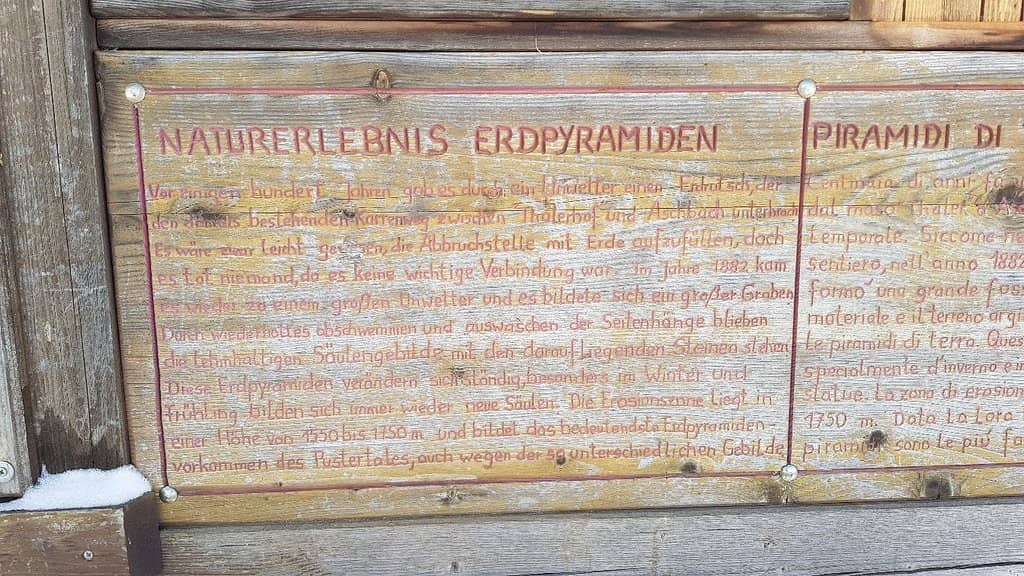 NATURERLEBNIS ERDPYRAMIDEN
Vor einigen hundert Jahren gab es durch ein Unwetter einen Erdrutsch, der
den damals bestehenden Karrenweg zwischen Thalerhof und Aschbach unterbrach
Es wäre zwar leicht gewesen, die Abbruchstelle mit Erde aufzufüllen, doch
es tat niemand, da es keine wichtige Verbindung war. Im Jahre 1882 kam
es wieder zu einem großen Unwetter und es bildete sich ein großer Graben
Durch wiederholtes abschwemmen und auswaschen der Seitenhänge blieben
die lehmhaltigen Säulengebilde mit den daraufliegenden Steinen stehen
Diese Erdpyramiden verändern sich ständig, besonders im Winter und
Frühling bilden sich immer wieder neue Säulen. Die Erosionszone liegt in
einer Höhe von 1550 bis 1750 m und bildet das bedeutendste Erdpyramiden-
vorkommen des Pustertales, auch wegen der so unterschiedlichen Gebilde
PIRAMIDI DI
Centinaia di anni fa
dal maso Thaler
temporale. Siccome
sentiero, nell'anno 1882
formò una grande
materiale e il terreno
le piramidi di terra.
specialmente d'inverno e
statue. La zona di
1750 m. Data la Loro
piramidi sono le più